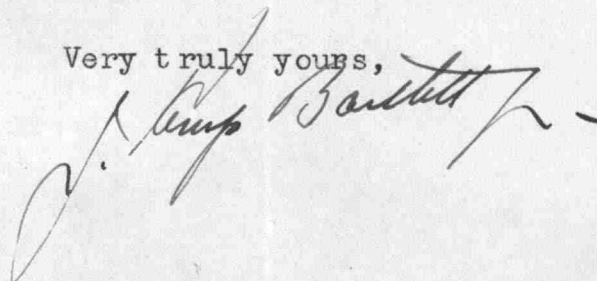 Very truly yours,
J. Kemp Bartlett Jr